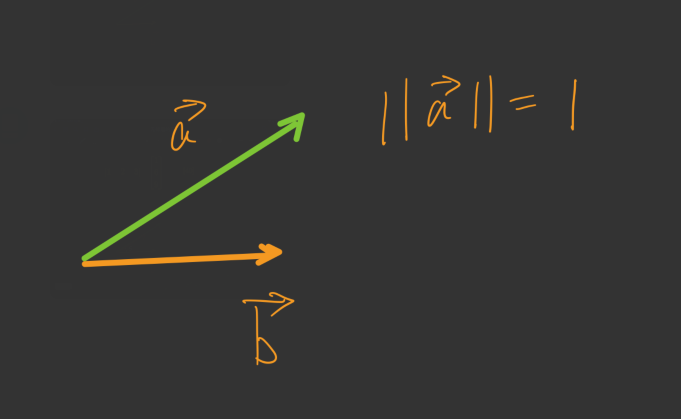 $\vec{a}$
$||\vec{a}|| = 1$
$\vec{b}$